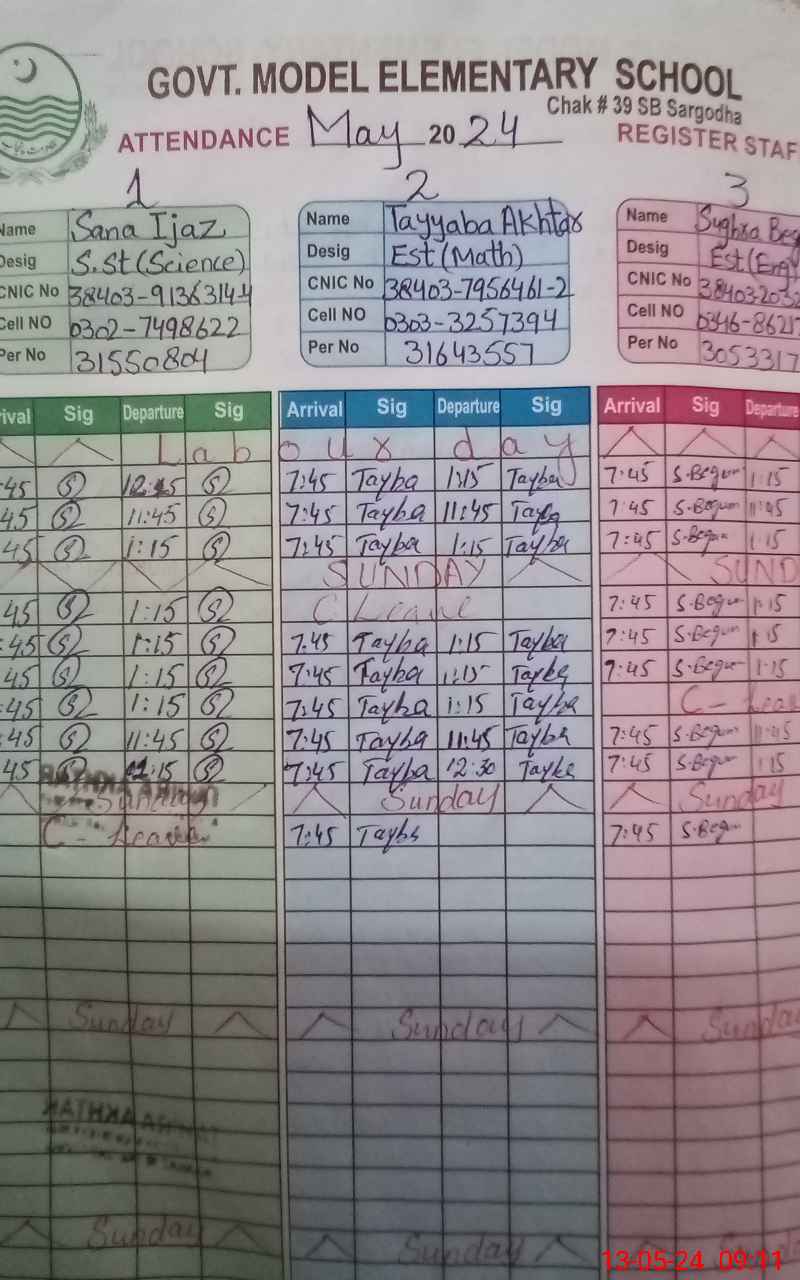 GOVT. MODEL ELEMENTARY SCHOOL
Chak # 39 SB Sargodha
ATTENDANCE May 2024 REGISTER STAF
1 2 3
Name Sana Ijaz Name Tayyaba Akhtar Name Sughra Beg
Desig S.St (Science) Desig Est (Math) Desig Est (Eng
CNIC No 38403-9136314-4 CNIC No 38403-7956461-2 CNIC No 38403-203
Cell NO 0302-7498622 Cell NO 0303-3257394 Cell NO 0346-8621
Per No 31550804 Per No 31643557 Per No 3053317
ival Sig Departure Sig Arrival Sig Departure Sig Arrival Sig Departure
Labour day
:45 12:15 7:45 Tayba 1:15 Tayba 7:45 S.Begum 1:15
45 11:45 7:45 Tayba 11:45 Tayba 7:45 S.Begum 11:45
45 1:15 7:45 Tayba 1:15 Tayba 7:45 S.Begum 1:15
SUNDAY SUND
45 1:15 C Leave 7:45 S.Begum 1:15
:45 1:15 7:45 Tayba 1:15 Tayba 7:45 S.Begum 1:15
45 1:15 7:45 Tayba 1:15 Tayba 7:45 S.Begum 1:15
:45 1:15 7:45 Tayba 1:15 Tayba C-Lea
:45 11:45 7:45 Tayba 11:45 Tayba 7:45 S.Begum 11:45
45 12:15 7:45 Tayba 12:30 Tayba 7:45 S.Begum 1:15
Sunday Sunday Sunday
C-Leave 7:45 Tayba 7:45 S.Begum
Sunday Sunday Sunday
Sunday Sunday Sunday
13-05-24 09:11